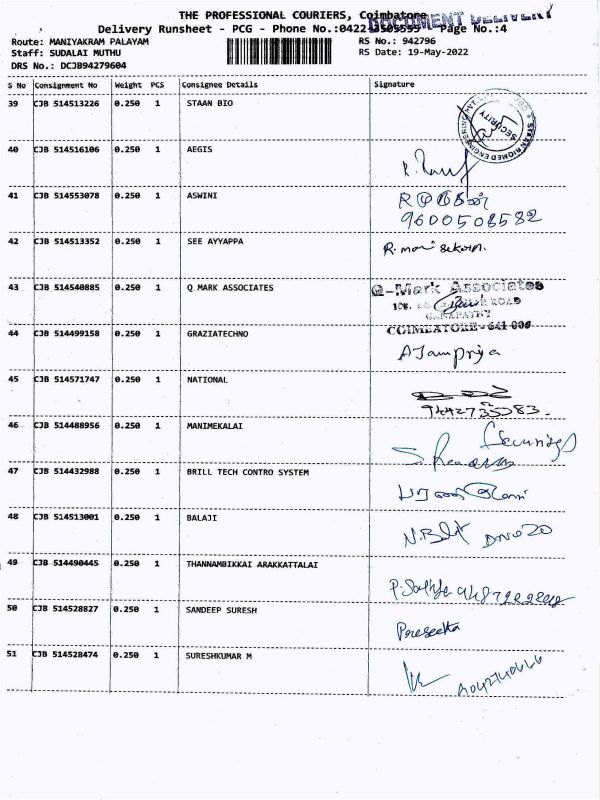 THE PROFESSIONAL COURIERS, Coimbatore
DOCUMENT DELIVERY
Delivery Runsheet - PCG - Phone No.:0422 Page No.:4
Route: MANIYAKRAM PALAYAM RS No.: 942796
Staff: SUDALAI MUTHU RS Date: 19-May-2022
DRS No.: DCJB94279604
S No Consignment No Weight PCS Consignee Details Signature
39 CJB 514513226 0.250 1 STAAN BIO
SECURITY
40 CJB 514516106 0.250 1 AEGIS
41 CJB 514553078 0.250 1 ASWINI
9600508582
42 CJB 514513352 0.250 1 SEE AYYAPPA
43 CJB 514540885 0.250 1 Q MARK ASSOCIATES Q-Mark Associates
ROAD
GANAPATHY
COIMBATORE - 641 006
44 CJB 514499158 0.250 1 GRAZIATECHNO
45 CJB 514571747 0.250 1 NATIONAL
46 CJB 514488956 0.250 1 MANIMEKALAI
47 CJB 514432988 0.250 1 BRILL TECH CONTRO SYSTEM
48 CJB 514513001 0.250 1 BALAJI
49 CJB 514490445 0.250 1 THANNAMBIKKAI ARAKKATTALAI
50 CJB 514528827 0.250 1 SANDEEP SURESH
51 CJB 514528474 0.250 1 SURESHKUMAR M